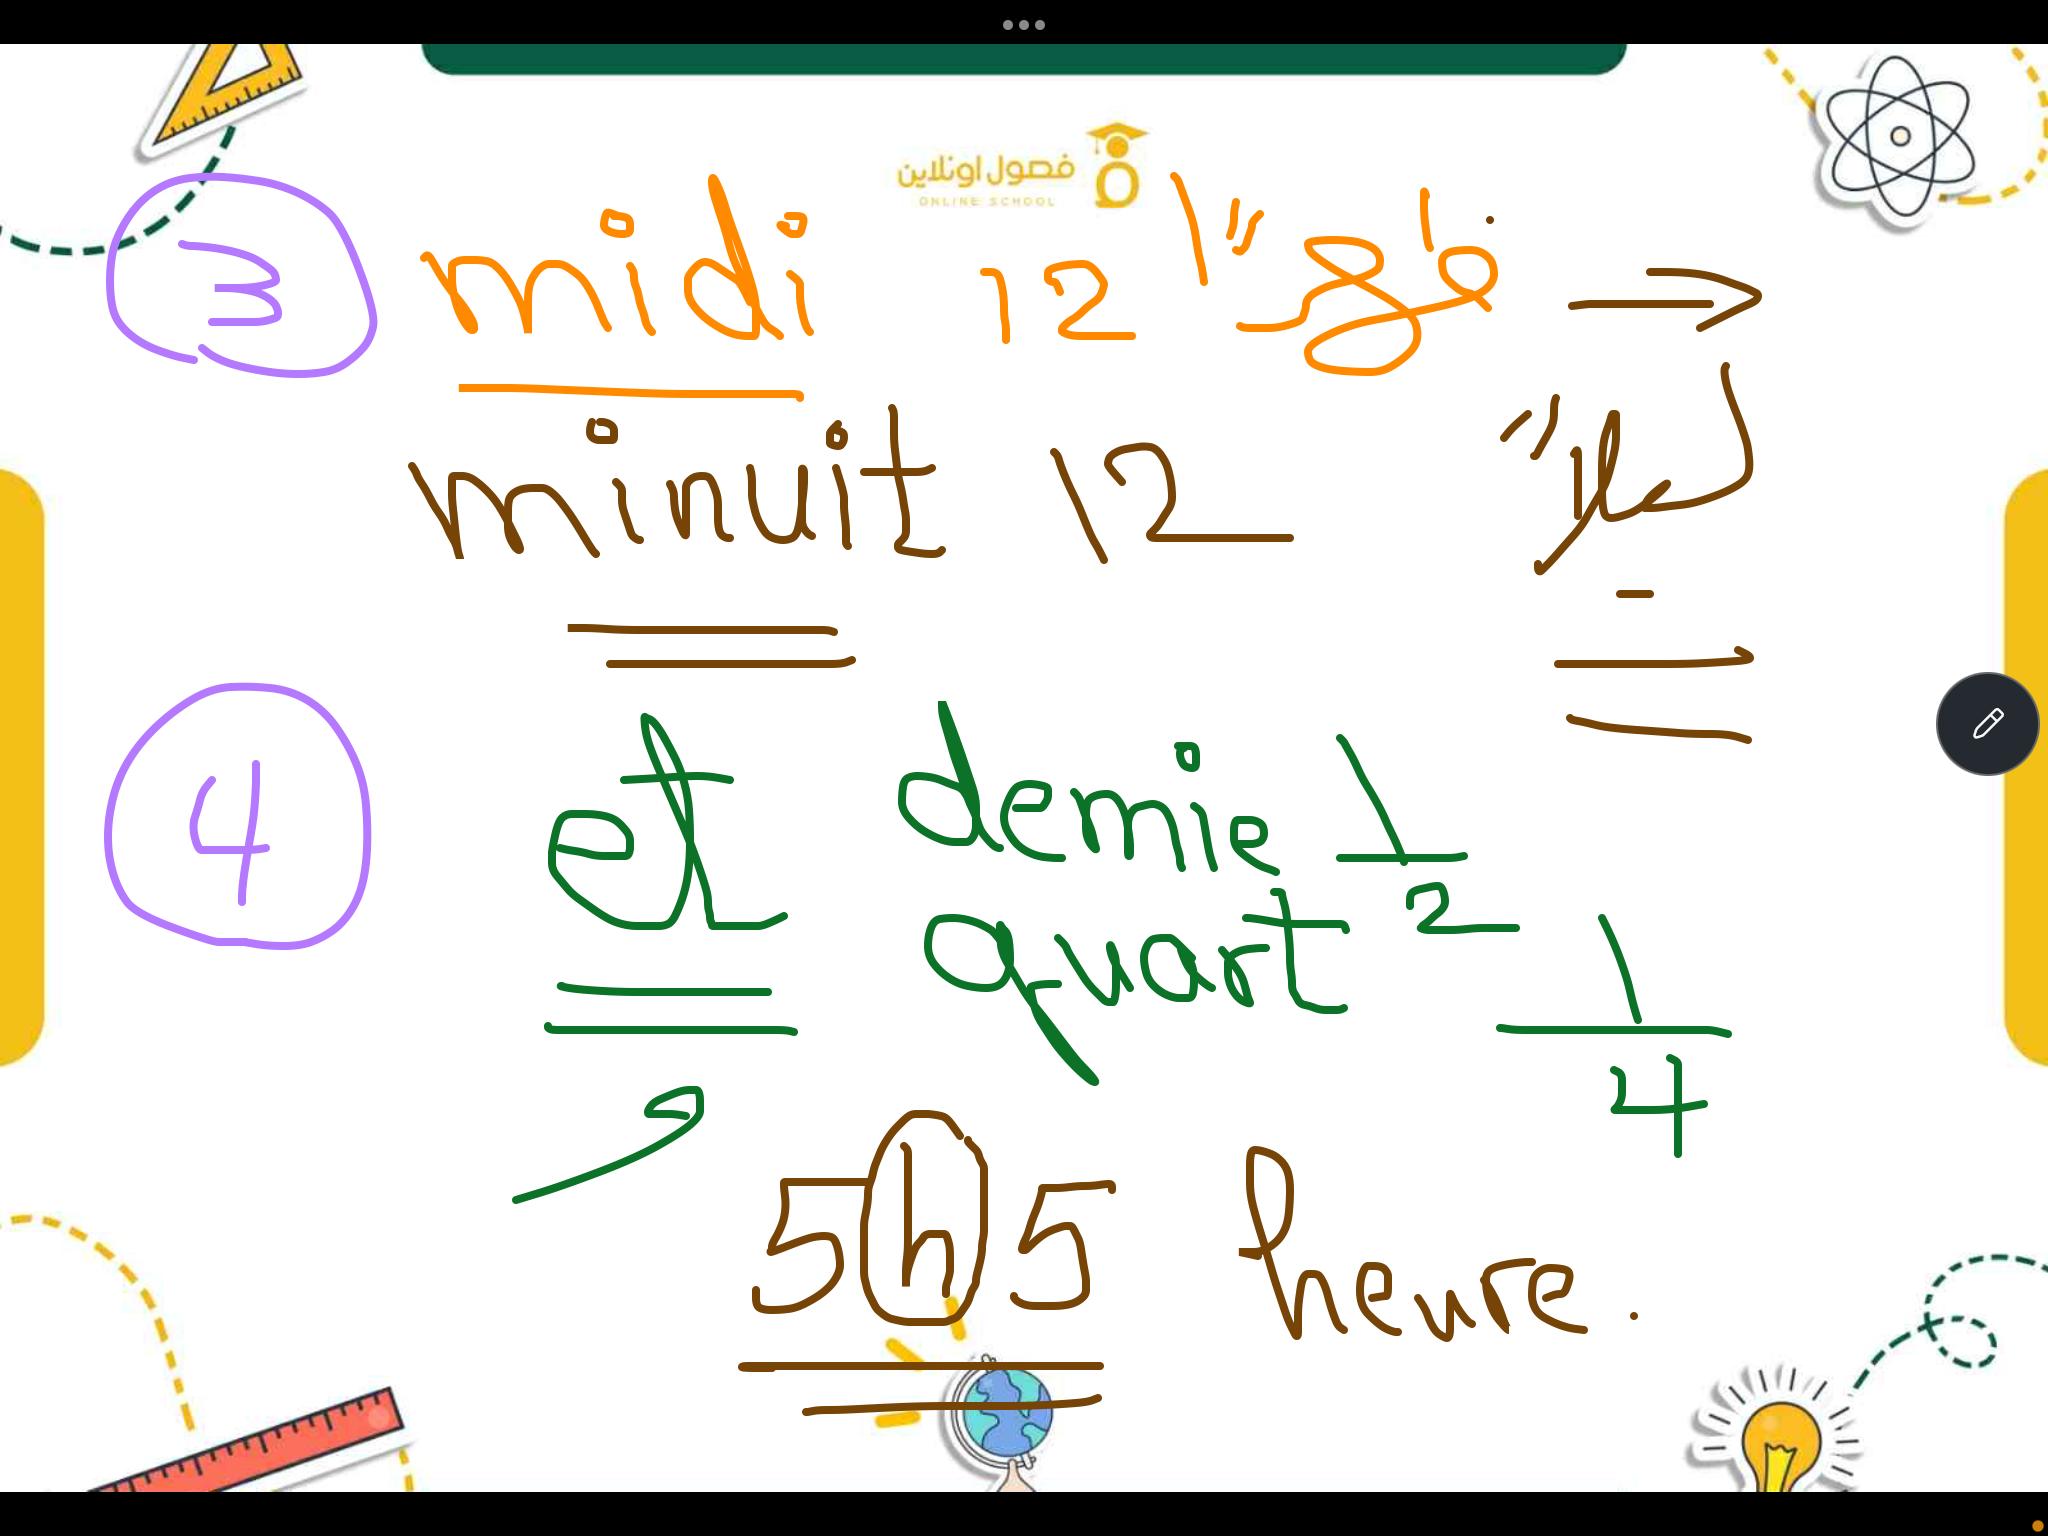 فصول اونلاين
ONLINE SCHOOL
3 midi 12 ظهرا
minuit 12 ليلا
4 et demie 1/2
quart 1/4
و
5h5 heure.